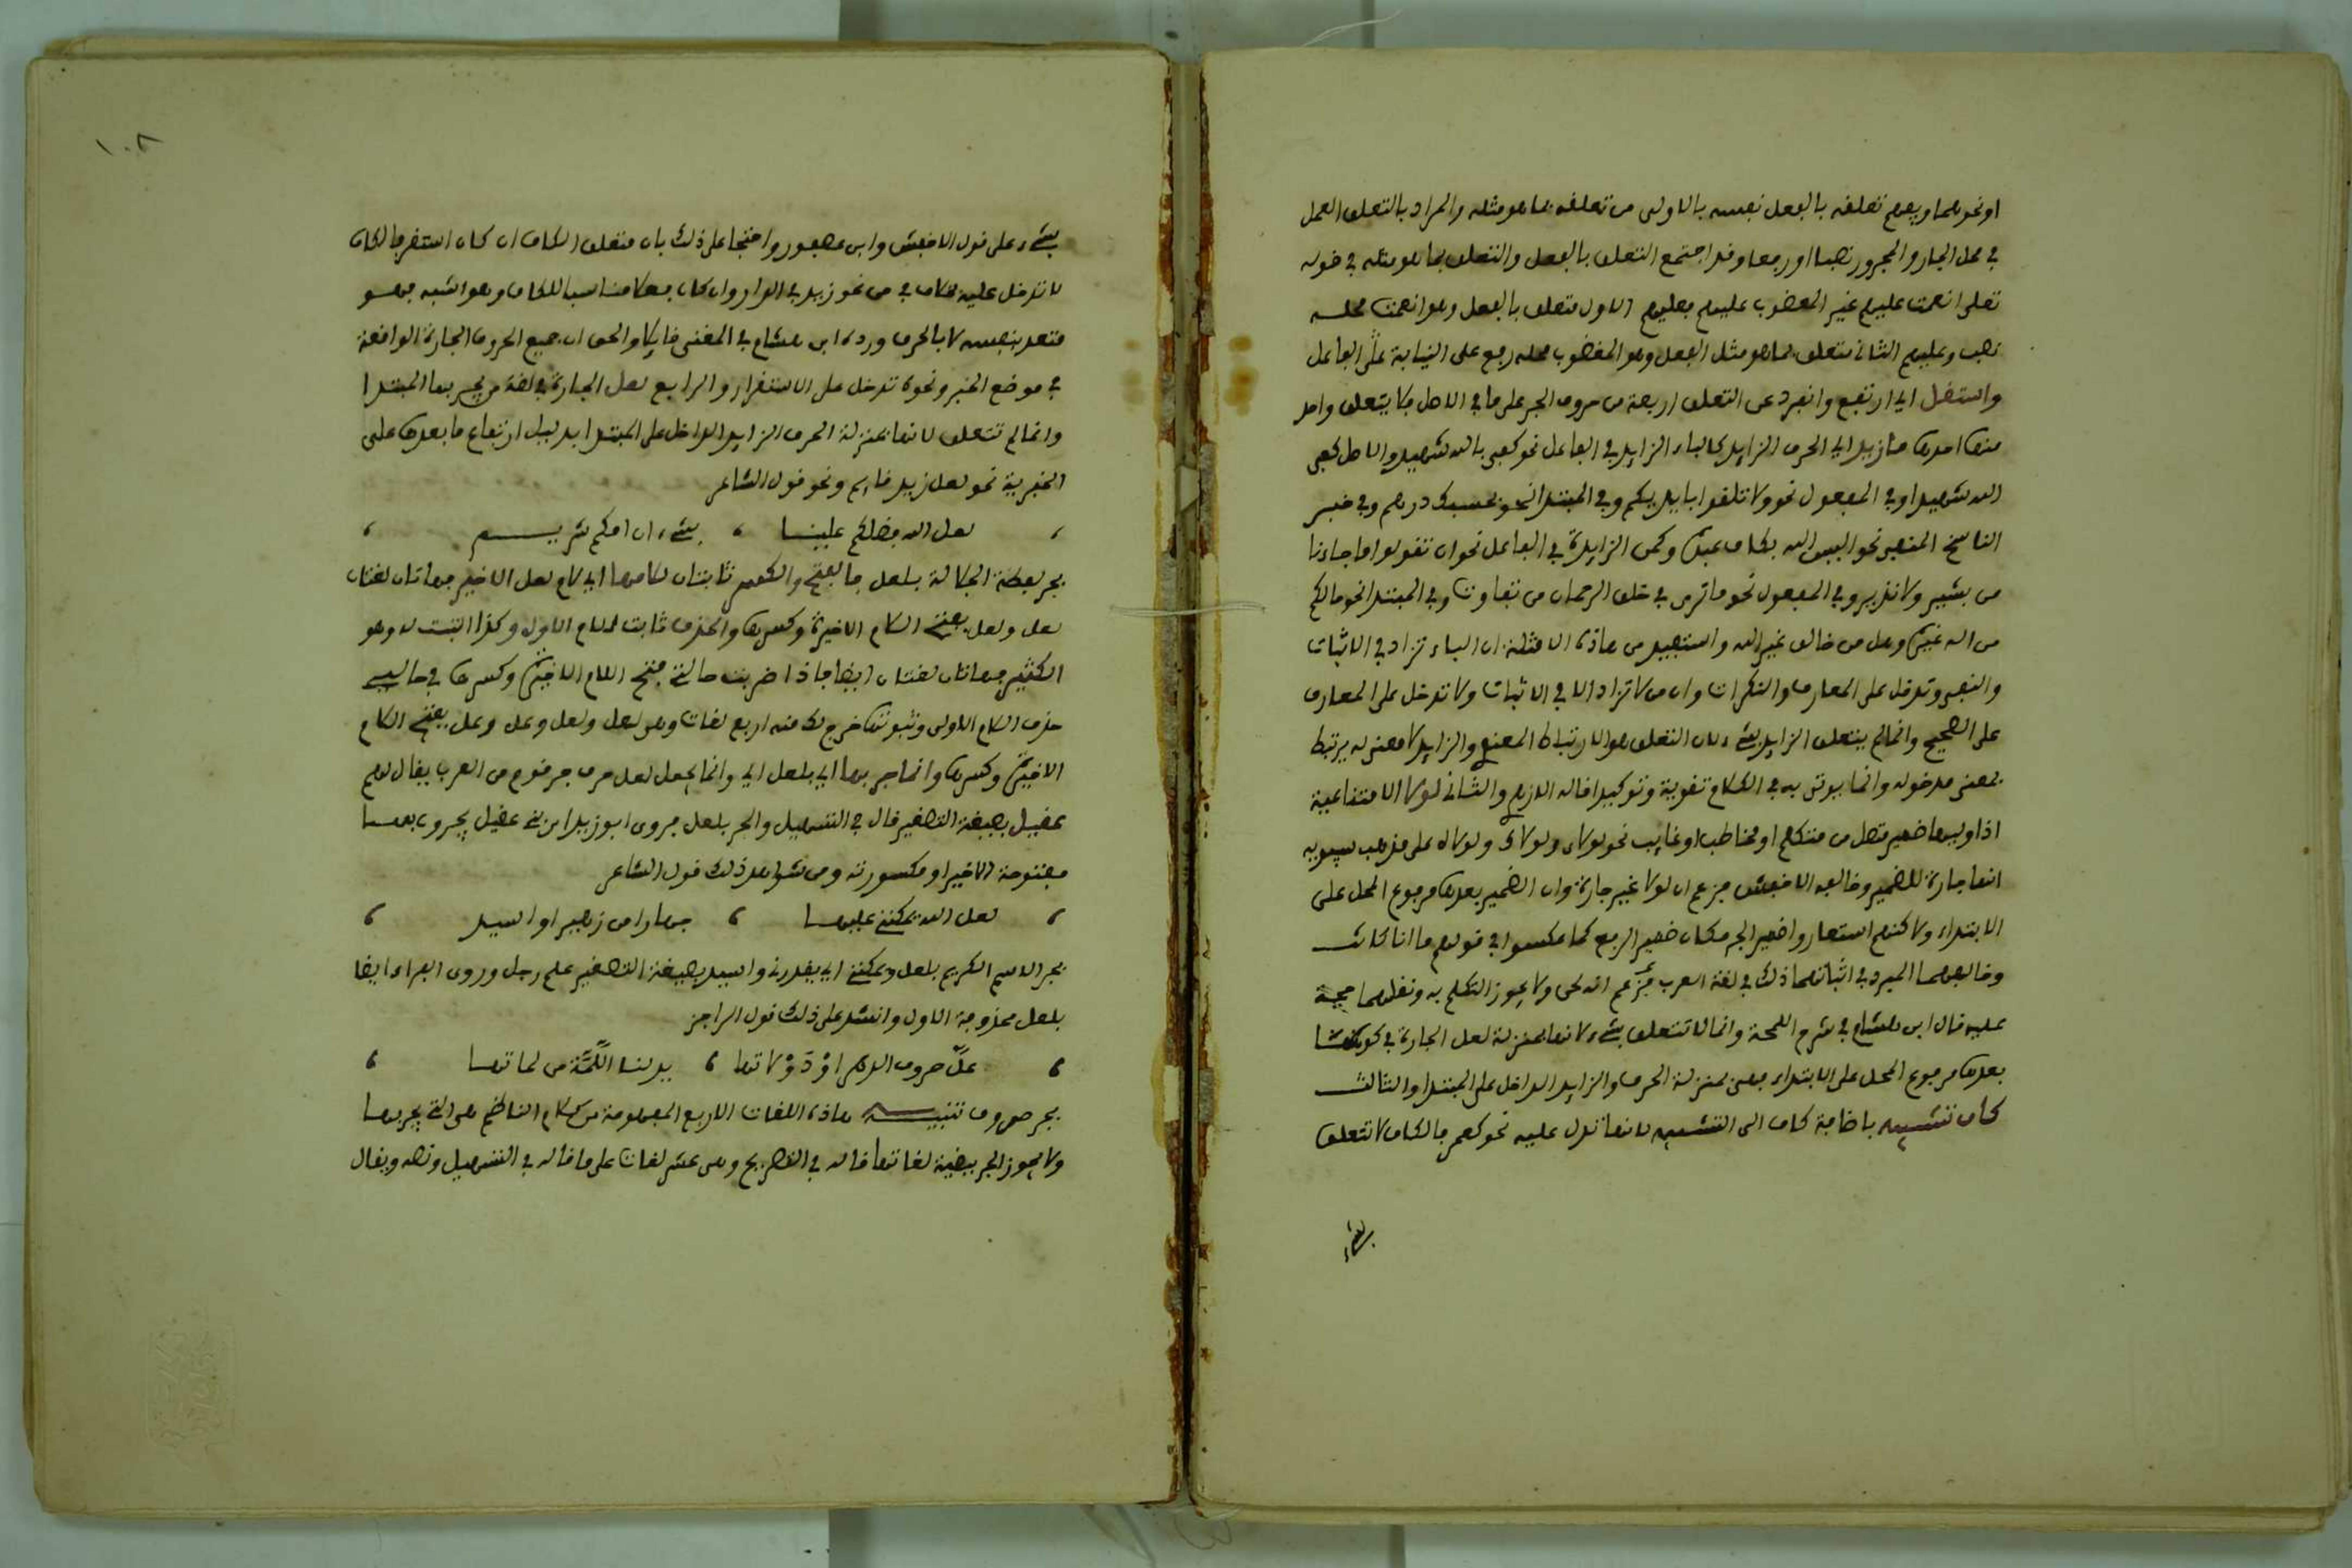 او نحوهما ويفهم تعلقه بالفعل نفسه بالاولى من تعلقه بما هو مثله والمراد بالتعلق العمل
في محل الجار والمجرور نصبا او رفعا وقد اجتمع التعلق بالفعل والتعلق بما هو مثله في قوله
تعلى انعمت عليهم غير المغضوب عليهم فعليهم الاول متعلق بالفعل وهو انعمت محله
نصب وعليهم الثاني متعلق بما هو مثل الفعل وهو المغضوب محله رفع على النيابة على الفاعل
واستقل اي ارتفع وانفرد عن التعلق اربعة من حروف الجر على ما في الاصل فلا يتعلق واحد
منها احدها ما زيد اي الحرف الزايد كالباء الزايد في الفاعل نحو كفى بالله شهيدا والاصل كفى
الله شهيدا وفي المفعول نحو ولا تلقوا بايديكم وفي المبتدا نحو بحسبك درهم وفي خبر
الناسخ المنفي نحو اليس الله بكاف عبده وكمن الزايدة في الفاعل نحو ان تقولوا ما جاءنا
من بشير ولا نذير وفي المفعول نحو ما ترى في خلق الرحمان من تفاوت وفي المبتدا نحو ما لكم
من اله غيره وهل من خالق غير الله واستفيد من هاذه الامثلة ان الباء تزاد في الاثبات
والنفي وتدخل على المعارف والنكرات وان من لا تزاد الا في الاثبات ولا تدخل على المعارف
على الصحيح وانما لم يتعلق الزايد بشيء لان التعلق هو الارتباط المعنوي والزايد لا معنى له يرتبط
بمعنى مدخوله وانما يوتى به في الكلام تقوية وتوكيدا قاله الازهري والثاني لولا الامتناعية
اذا وليها ضمير متصل من متكلم او مخاطب او غايب نحو لولاي ولولاك ولولاه على مذهب سيبويه
انها جارة للضمير وخالفه الاخفش فزعم ان لولا غير جارة وان الضمير بعدها مرفوع المحل على
الابتداء ولاكنهم استعاروا ضمير الجر مكان ضمير الرفع كما عكسوا في قولهم ما انا كانت
وخالفهما المبرد في اثباتهما ذلك في لغة العرب فزعم انه لحن ولا يجوز التكلم به ونقلهما حجة
عليه قال ابن هشام في شرح اللمحة وانما لا تتعلق بشيء لانها بمنزلة لعل الجارة في كون ما
بعدها مرفوع المحل على الابتداء فهي بمنزلة الحرف والزايد الداخل على المبتدا والثالث
كاف تشبيه باضافة كاف الى التشبيه لانها تدل عليه نحو كعمرو فالكاف لا تتعلق
بشيء
١٠٨
بشيء على قول الاخفش وابن عصفور واحتجا على ذلك بان متعلق الكاف ان كان استقر فالكاف
لا تدخل عليه بخلاف في من نحو زيد في الدار وان كان فعلا مناسبا للكاف وهو اشبه فهو
متعد بنفسه لا بالحرف ورده ابن هشام في المغني قايلا والحق ان جميع الحروف الجارة الواقعة
في موضع الخبر ونحوه تدخل على الاستقرار والرابع لعل الجارة في لغة من يجر بها المبتدا
وانما لم تتعلق لانها بمنزلة الحرف الزايد الداخل على المبتدا بدليل ارتفاع ما بعدها على
الخبرية نحو لعل زيد قايم ونحو قول الشاعر
لعل الله فضلكم علينا ، بشيء ان امكم شريم
بجر لفظة الجلالة بلعل فالفتح والكسر ثابتان للامها اي لام لعل الاخير فهاتان لغتان
لعل ولعل بفتح اللام الاخيرة وكسرها والحذف ثابت للام الاول وكذا الثبت له وهو
الكثير فهاتان لغتان ايضا فاذا ضربت حالتي فتح اللام الاخيرة وكسرها في حالتي
حذف اللام الاولى وثبوتها خرج لك منه اربع لغات وهي لعل ولعل وعل وعل بفتح اللام
الاخيرة وكسرها وانما جر بها اي بلعل اي وانما يجعل لعل حرف جر قوم من العرب يقال لهم
عقيل بصيغة التصغير قال في التسهيل والجر بلعل فروى ابو زيد ان بني عقيل يجرون بها
مفتوحة الاخير او مكسورته ومن شواهد ذلك قول الشاعر
لعل الله يمكنني عليها ، جهارا من زهير او اسيد
بجر الاسم الكريم بلعل ويمكنني اي يقدرني واسيد بصيغة التصغير علم رجل وروى الفراء ايضا
بلعل محذوفة الاول وانشد على ذلك قول الراجز
علّ صروف الدهر او دولاتها ، يدلننا اللمّة من لماتها
بجر صروف تنبيه هاذه اللغات الاربع المفهومة من كلام الناظم هي التي يجر بها
ولا يجوز الجر ببقية لغاتها قاله في التصريح وهي عشر لغات على ما قاله في التسهيل ونصه ويقال